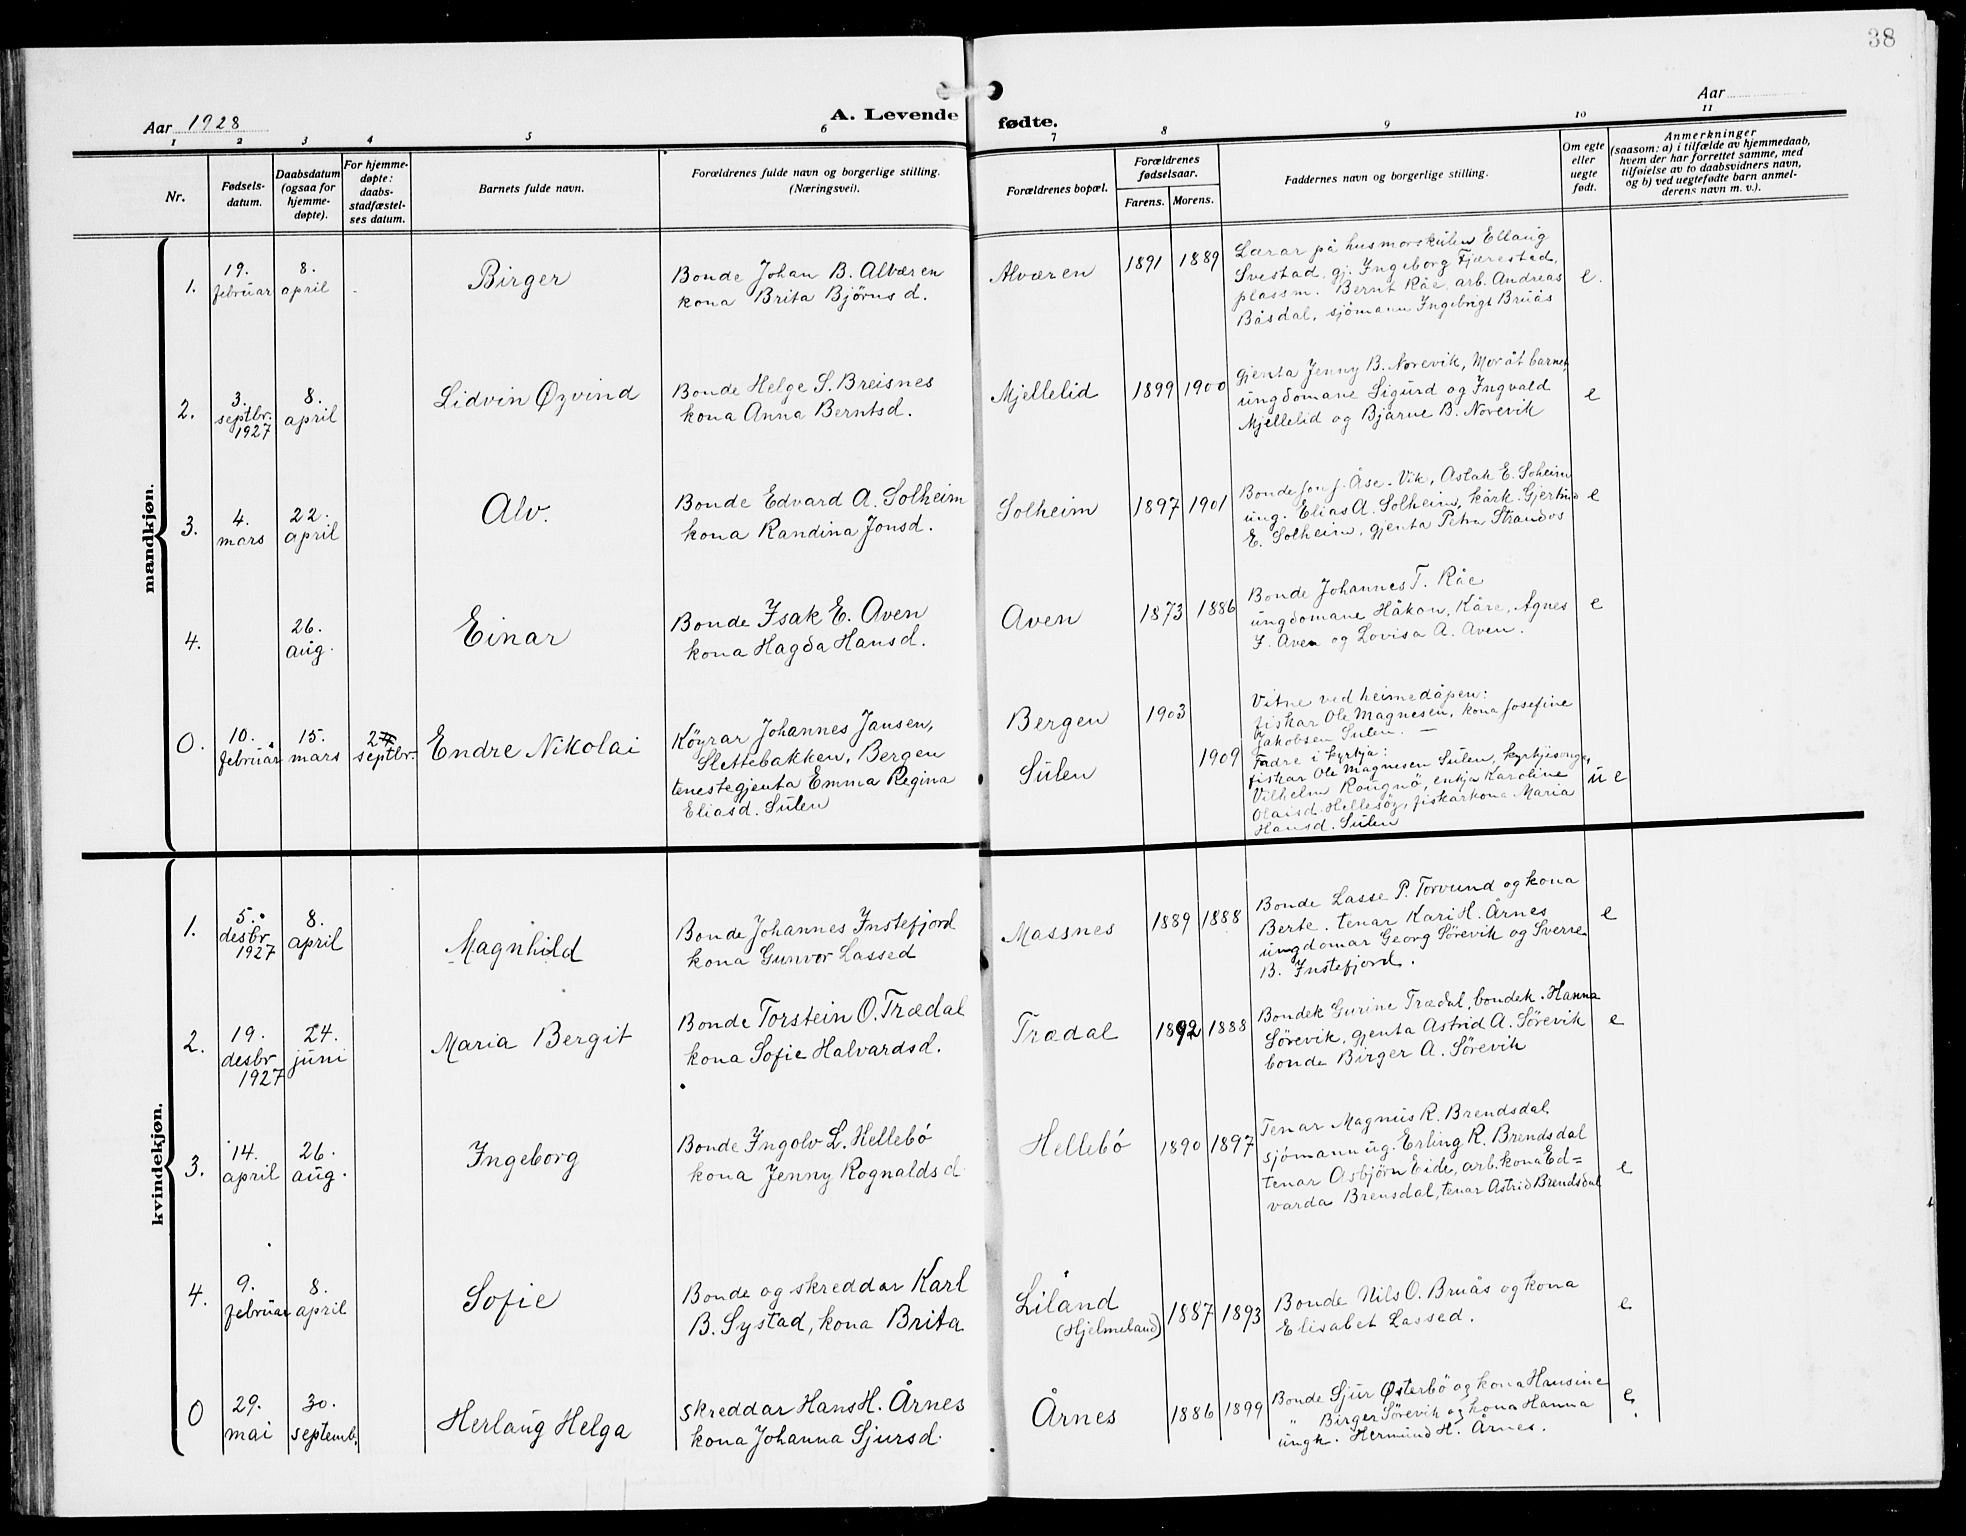 38
Aar 1928
A. Levende fødte.
Aar
1 2 3 4 5 6 7 8 9 10 11
Nr.
Fødsels-
datum.
Daabsdatum
(ogsaa for
hjemme-
døpte).
For hjemme-
døpte:
daabs-
stadfæstel-
ses datum.
Barnets fulde navn.
Forældrenes fulde navn og borgerlige stilling.
(Næringsvei).
Forældrenes bopæl.
Forældrenes
fødselsaar.
Farens. Morens.
Faddernes navn og borgerlige stilling.
Om egte
eller
uegte
født.
Anmerkninger
(saasom: a) i tilfælde av hjemmedaab,
hvem der har forrettet samme, med
tilføielse av to daabsvidners navn,
og b) ved uegtefødte barn anmel-
derens navn m. v.).
mandkjøn.
1.
19.
februar
8.
april
Birger
Bonde Johan B. Alværen
kona Brita Bjørnsd.
Alværen
1891 1889
Lærar på husmorskulen Ellaug
Svestad, gj. Ingeborg Fjærestad,
plassm. Bernt Råe, arb. Andreas
Båsdal, sjömann Ingebrigt Bruås
e.
2.
3.
septbr.
1927
8.
april
Lidvin Øyvind
Bonde Helge S. Breisnes
kona Anna Berntsd.
Mjellelid
1899 1900
Gjenta Jenny B. Norevik, Mor åt barnet,
ungdomane Sigurd og Ingvald
Mjellelid og Bjarne B. Norevik
e
3.
4.
mars
22.
april
Alv.
Bonde Edvard A. Solheim
kona Randina Jonsd.
Solheim
1897 1901
Bonde Jon J. Åse-Vik, Aslak E. Soheim
ung. Elias A. Solheim, kårk. Gjertrud
E. Solheim, gjenta Petra Strandos
e
4.
26.
aug.
Einar
Bonde Isak E. Aven
kona Hagda Hansd.
Aven
1873 1886
Bonde Johannes T. Råe
ungdomane Håkon, Kåre, Agnes
I. Aven og Lovisa A. Aven.
e
0.
10.
februar
15.
mars
septbr.
Endre Nikolai
Köyrar Johannes Jansen,
Slettebakken, Bergen
tenestegjenta Emma Regina
Eliasd. Sulen
Bergen
Sulen
1903
1909
Vitne ved heimedåpen:
fiskar Ole Magnesen, kona Josefine
Jakobsen Sulen. —
Fadre i kyrkja:
fiskar Ole Magnesen Sulen, kyrkjesongar
Vilhelm Rongnö, enkja Karoline
Olaisd. Hellesöy, fiskarkona Maria
Hansd. Sulen
u e
kvindekjøn.
1.
5.
desbr
1927
8.
april
Magnhild
Bonde Johannes Instefjord
kona Gunvor Lassed
Massnes
1889 1888
Bonde Lasse P. Torvund og kona
Berte. tenar Kari H. Årnes
ungdomar Georg Sörevik og Sverre
B. Instefjord.
e
2.
19.
desbr
1927
24.
juni
Maria Bergit
Bonde Torstein O. Trædal
kona Sofie Halvardsd.
Trædal
1892 1888
Bondek Gurine Trædal, bondek. Hanna
Sörevik, gjenta Astrid A. Sörevik
bonde Birger A. Sörevik
e
3.
14.
april
26.
aug.
Ingeborg
Bonde Ingolv L. Hellebö
kona Jenny Rognaldsd.
Hellebö
1890 1897
Tenar Magnus R. Brendsdal
sjömann ug. Erling R. Brendsdal
tenar Asbjörn Eide, arb.kona Ed=
varda Brensdal, tenar Astrid Brendsdal
e
4.
9.
februar
8.
april
Sofie
Bonde og skreddar Karl
B. Systad, kona Brita
Liland
(Hjelmeland)
1887 1893
Bonde Nils O. Bruås og kona
Elisabet Lassed.
e
0
29.
mai
30.
septemb.
Herlaug Helga
Skreddar Hans H. Årnes
kona Johanna Sjursd.
Årnes
1886 1899
Bonde Sjur Østerbö og kona Hansine
" Birger Sörevik og kona Hanna
ungk. Hermund H. Årnes.
e